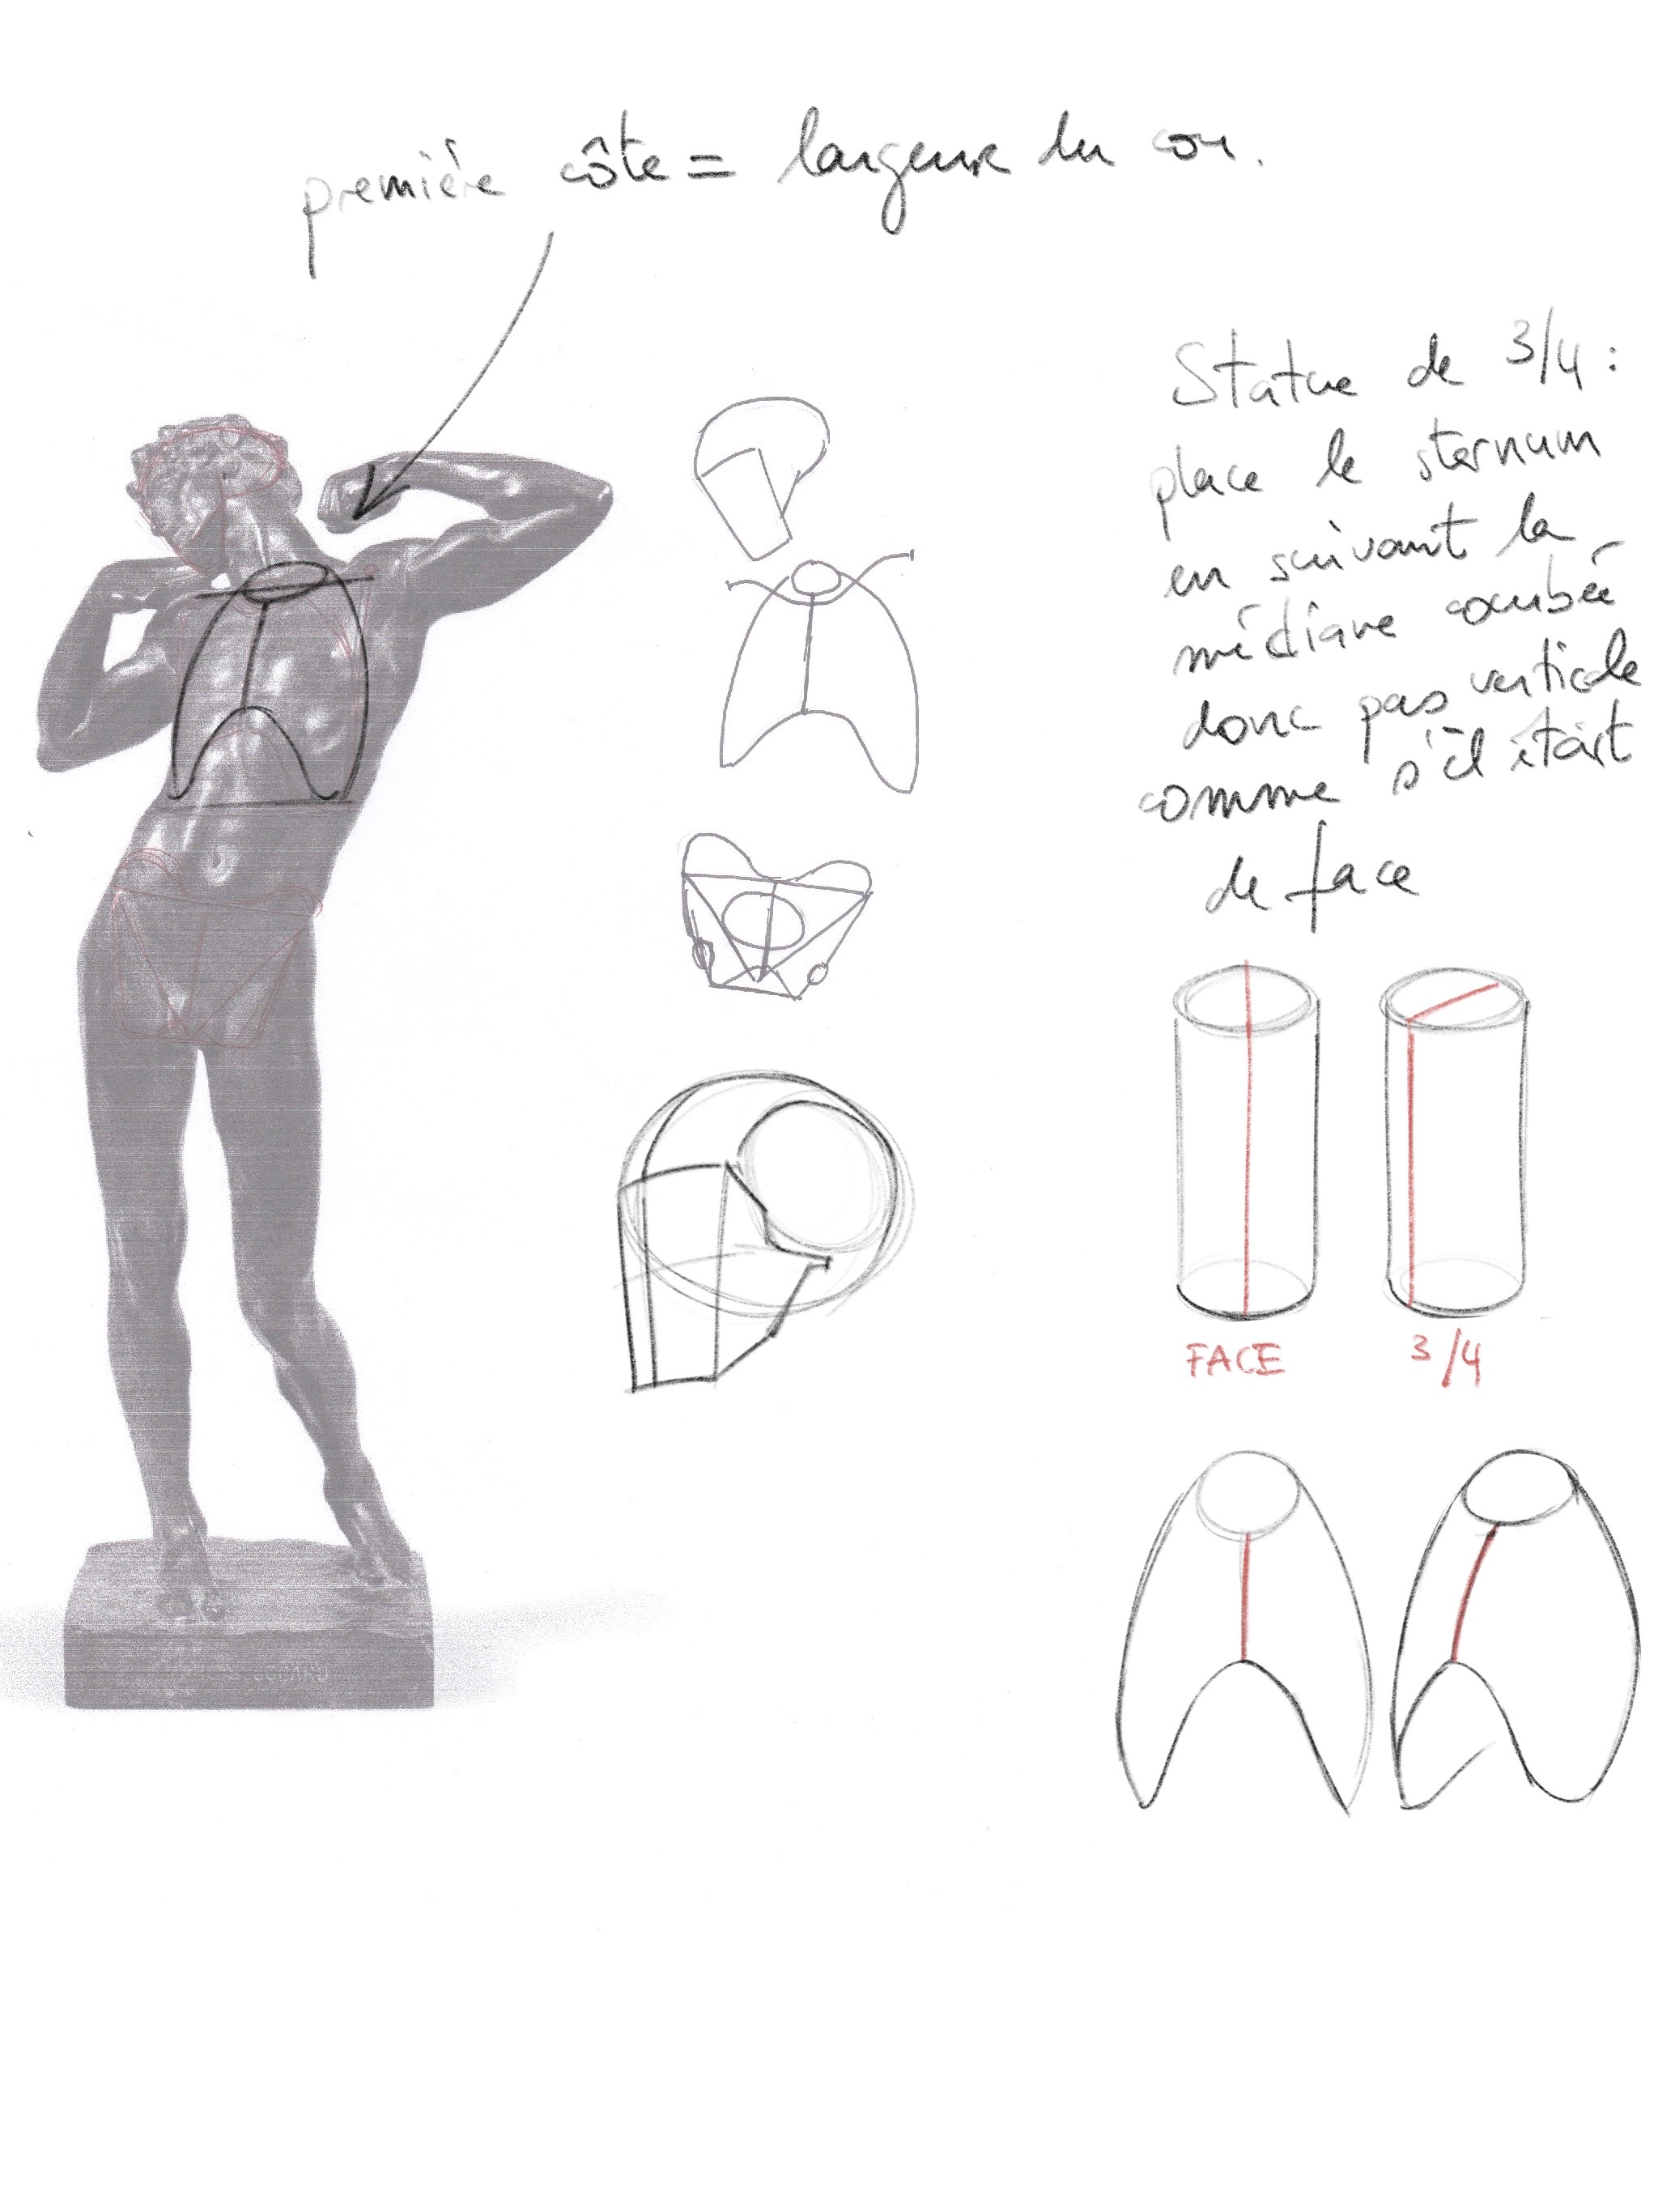 première côte = largeur du cou.
Statue de 3/4 :
place le sternum
en suivant la
médiane courbée
donc pas verticale
comme s'il était
de face
FACE
3/4